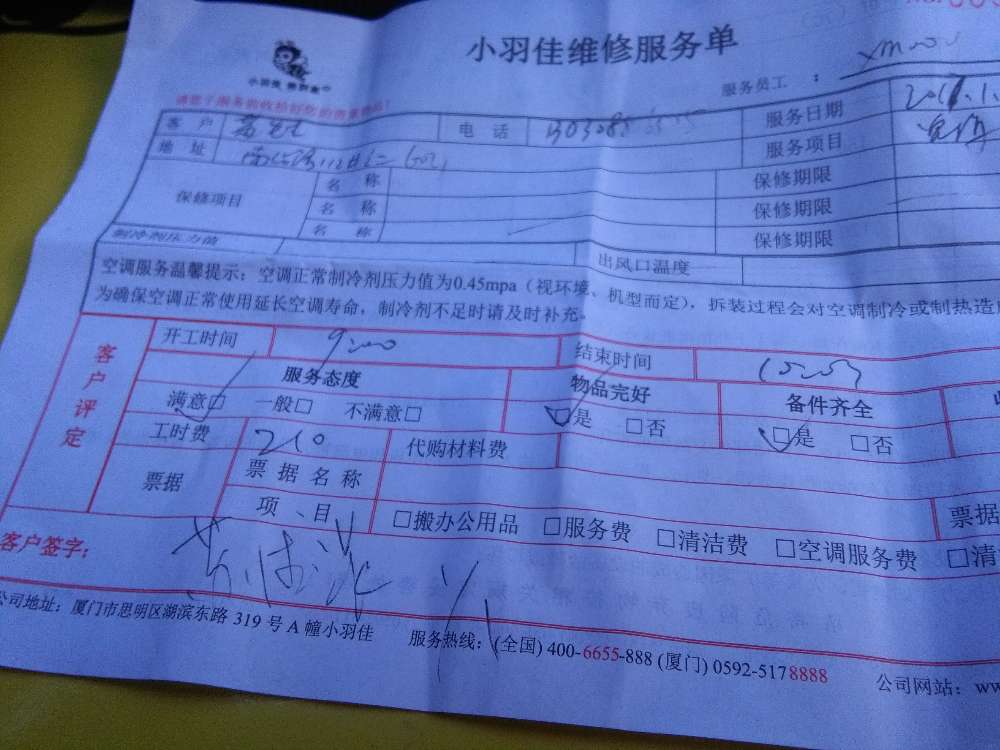 小羽佳维修服务单
服务员工：
请您于服务前收拾好您的贵重物品！
客户 电话 服务日期
地址 服务项目
保修项目 名称 保修期限
名称 保修期限
名称 保修期限
制冷剂压力值 出风口温度
空调服务温馨提示：空调正常制冷剂压力值为0.45mpa（视环境、机型而定），拆装过程会对空调制冷或制热造
为确保空调正常使用延长空调寿命，制冷剂不足时请及时补充。
客户评定
开工时间 9:00 结束时间
服务态度 物品完好 备件齐全
满意□ 一般□ 不满意□ □是 □否 □是 □否
工时费 210 代购材料费
票据 票据名称 票据
项、目 □搬办公用品 □服务费 □清洁费 □空调服务费 □清
客户签字：
公司地址：厦门市思明区湖滨东路 319 号 A 幢小羽佳 服务热线：(全国) 400-6655-888 (厦门) 0592-5178888 公司网站：ww